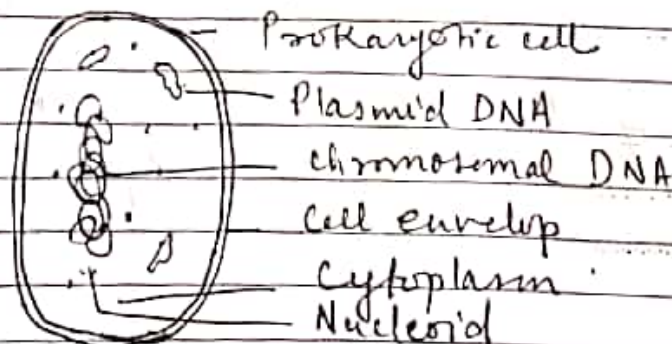 Prokaryotic cell
Plasmid DNA
Chromosomal DNA
Cell envelop
Cytoplasm
Nucleoid